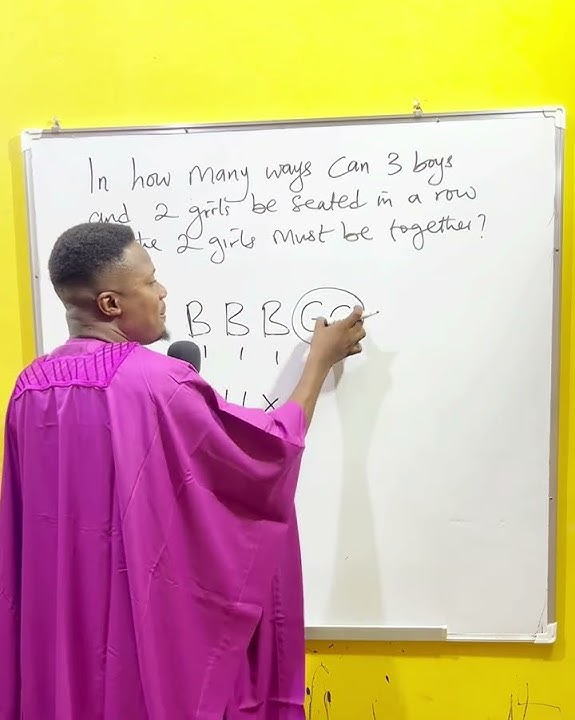 In how many ways can 3 boys
and 2 girls be seated in a row
the 2 girls must be together?
B B B G G
1 1 1
! ! X